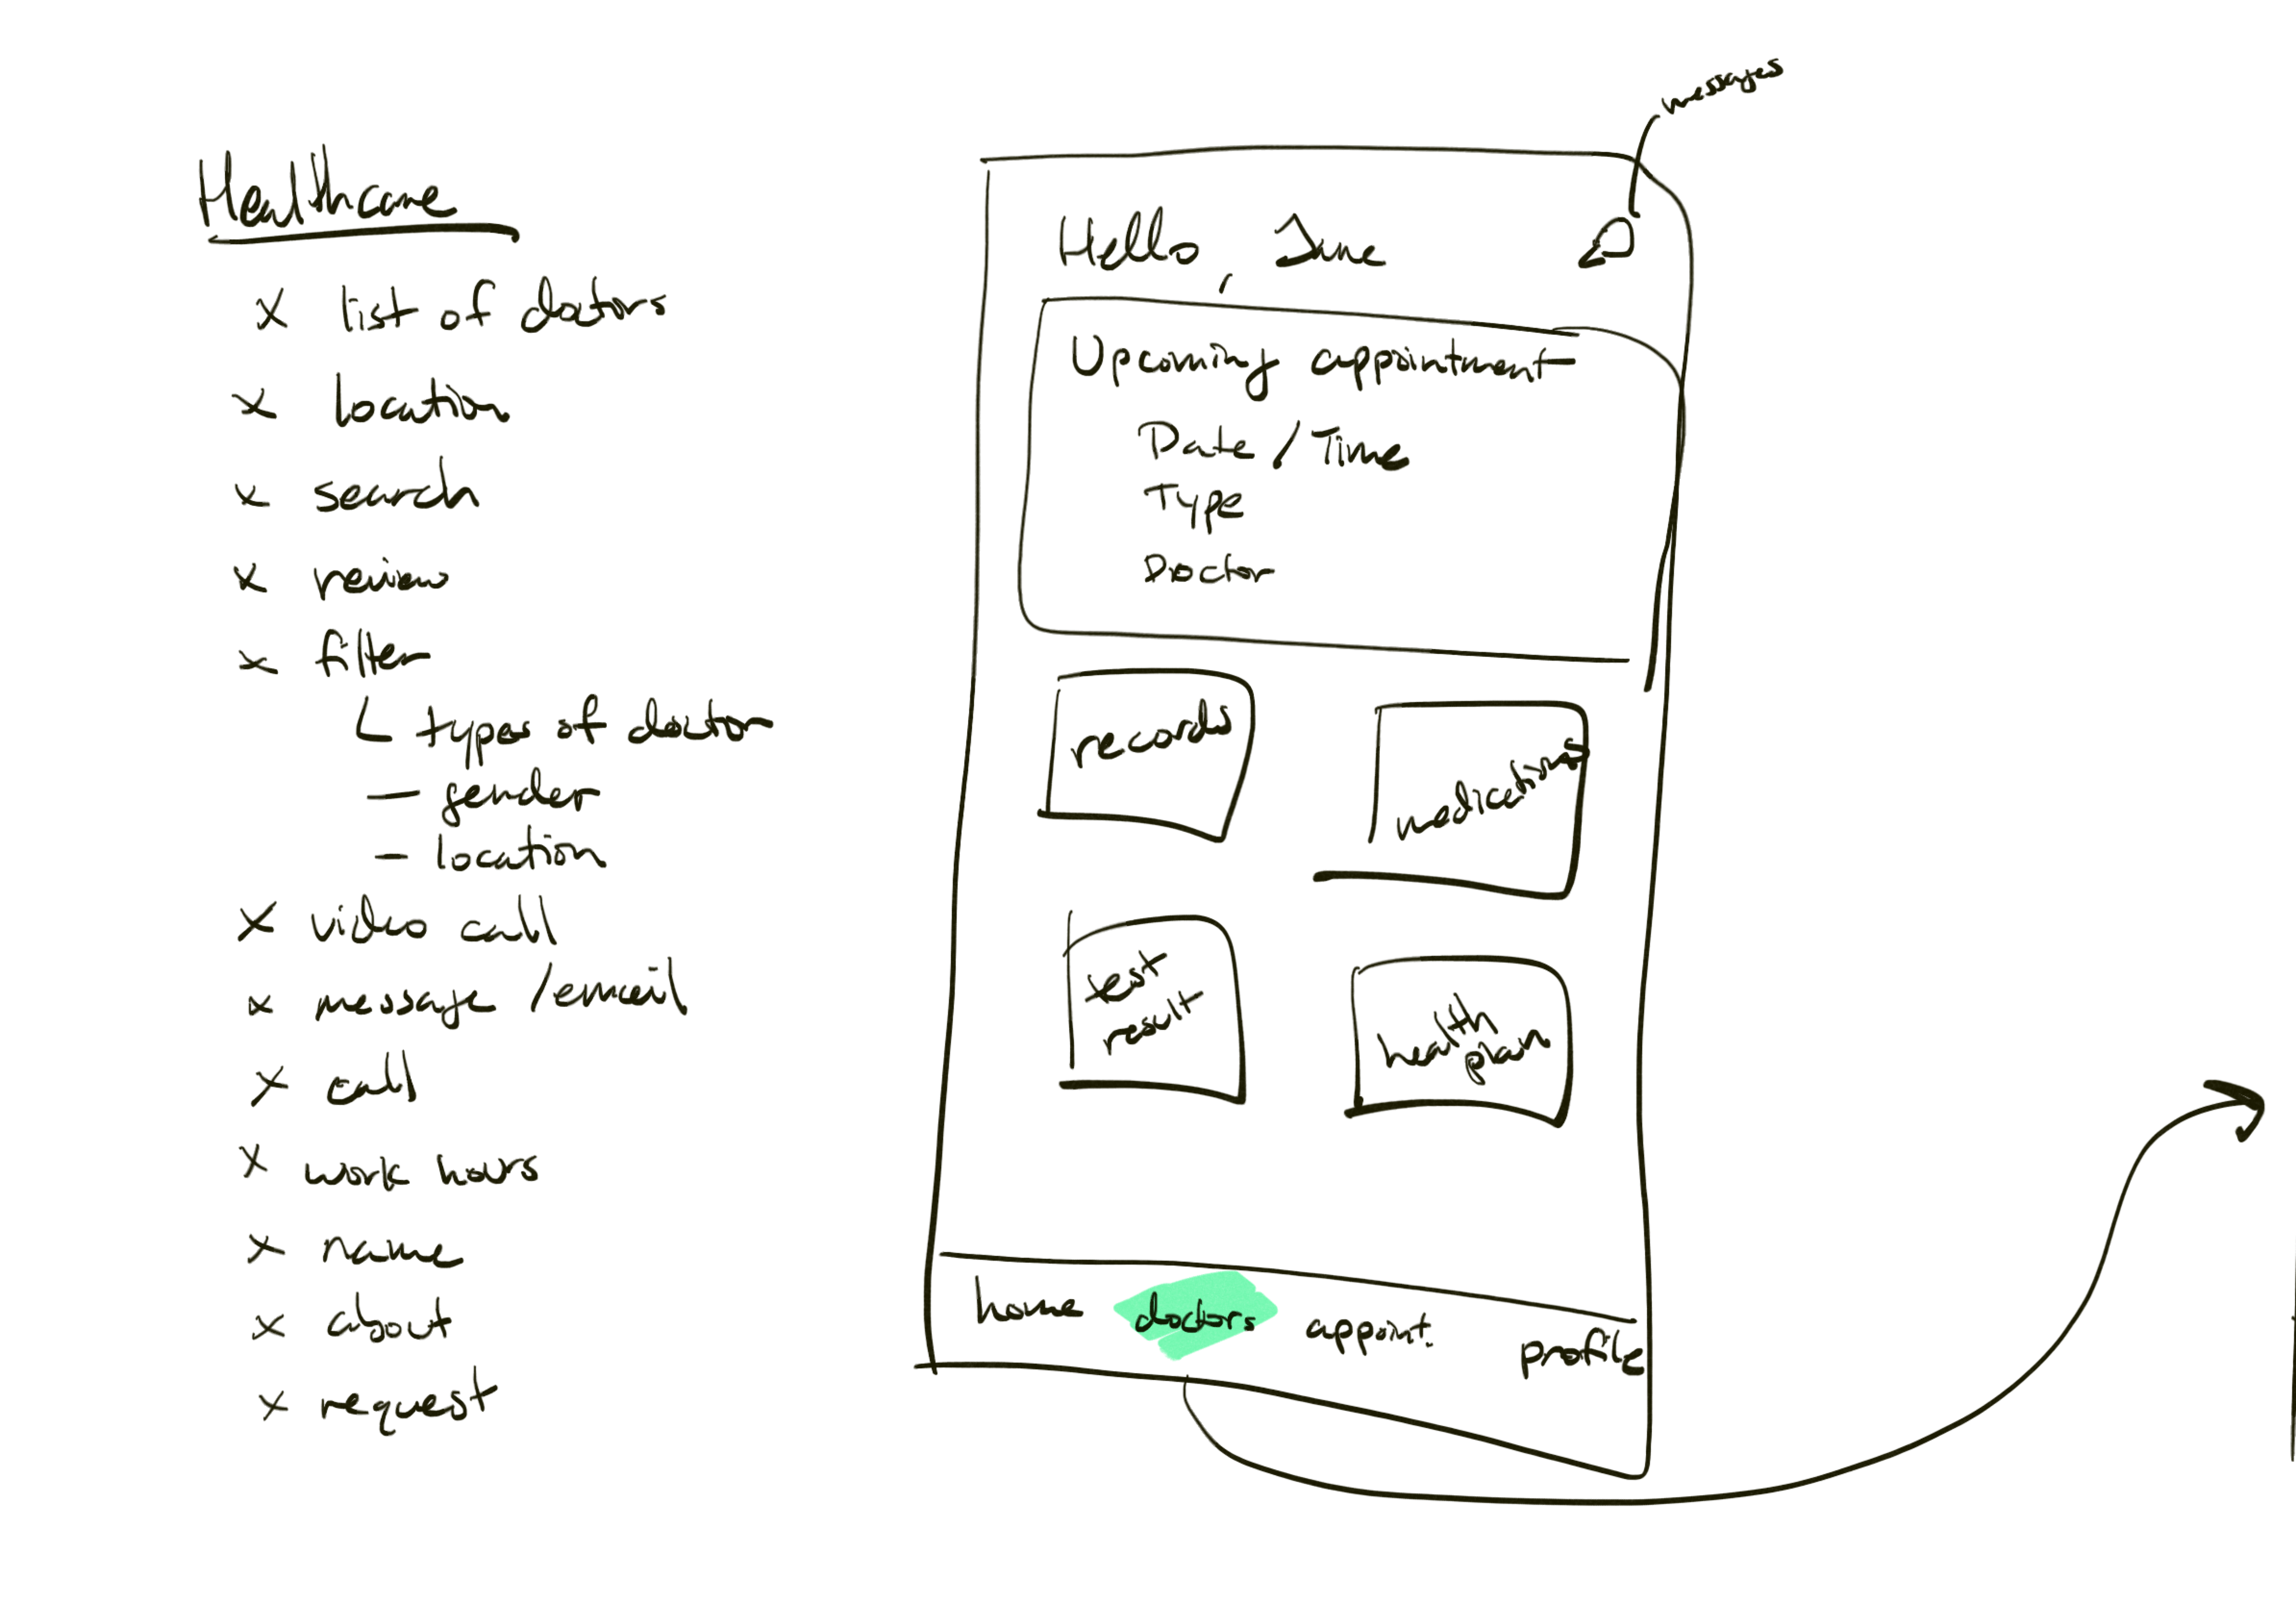 Healthcare
x list of doctors
x location
x search
x review
x filter
└ types of doctor
— gender
— location
x video call
x message /email
x call
x work hours
x name
x about
x request
messages
Hello, June
Upcoming appointment
Date / Time
Type
Doctor
records
medications
test
result
health
plan
home doctors appoint. profile